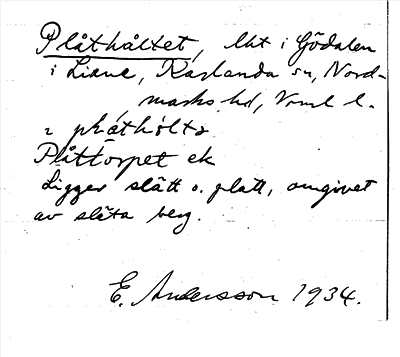 Plåthåltet, lht i Gödalen
i Liane, Karlanda sn, Nord-
marks hd, Vrml l.
Plåttorpet ek
Ligger slätt o. platt, omgivet
av släta berg.
E. Andersson 1934.